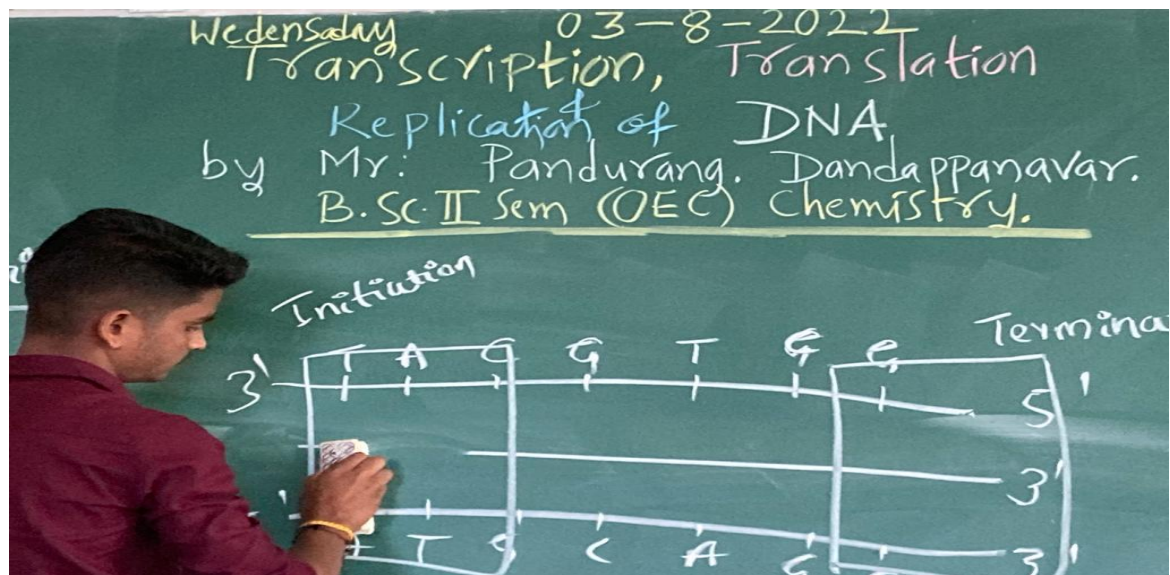 Wedensaday 03-8-2022
Transcription, Translation
&
Replication of DNA
by Mr: Pandurang. Dandappanavar.
B.Sc. II Sem (OEC) Chemistry.
Initiation
Termina
3' T A G G T G 5'
3'
T C A 3'